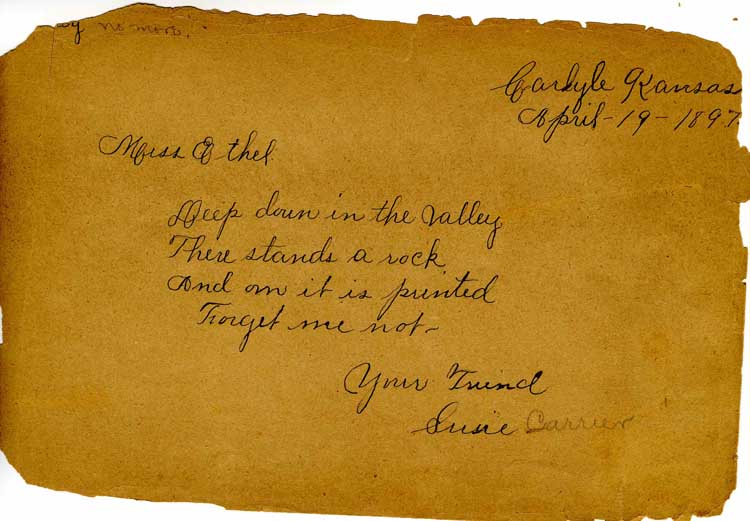 no more!
Carlyle Kansas
April-19-1897.
Miss Ethel.
Deep down in the Valley
There stands a rock
And on it is printed
Forget me not-
Your Friend
Susie Carrier